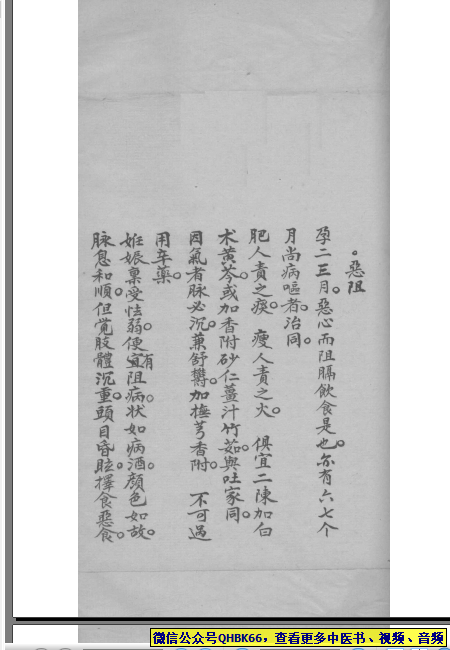 惡阻
孕二三月。惡心而阻膈飲食是也。亦有六七个
月尚病嘔者。治同。
肥人責之痰。瘦人責之火。俱宜二陳加白
术黄芩。或加香附砂仁薑汁竹茹。與吐家同。
因氣者脉必沉。兼舒鬱。加撫芎香附。不可過
用辛藥。
妊娠禀受怯弱。便有宜阻病。状如病酒。顏色如故。
脉息和順。但覺肢體沉重。頭目昏眩。擇食惡食。
微信公众号QHBK66，查看更多中医书、视频、音频